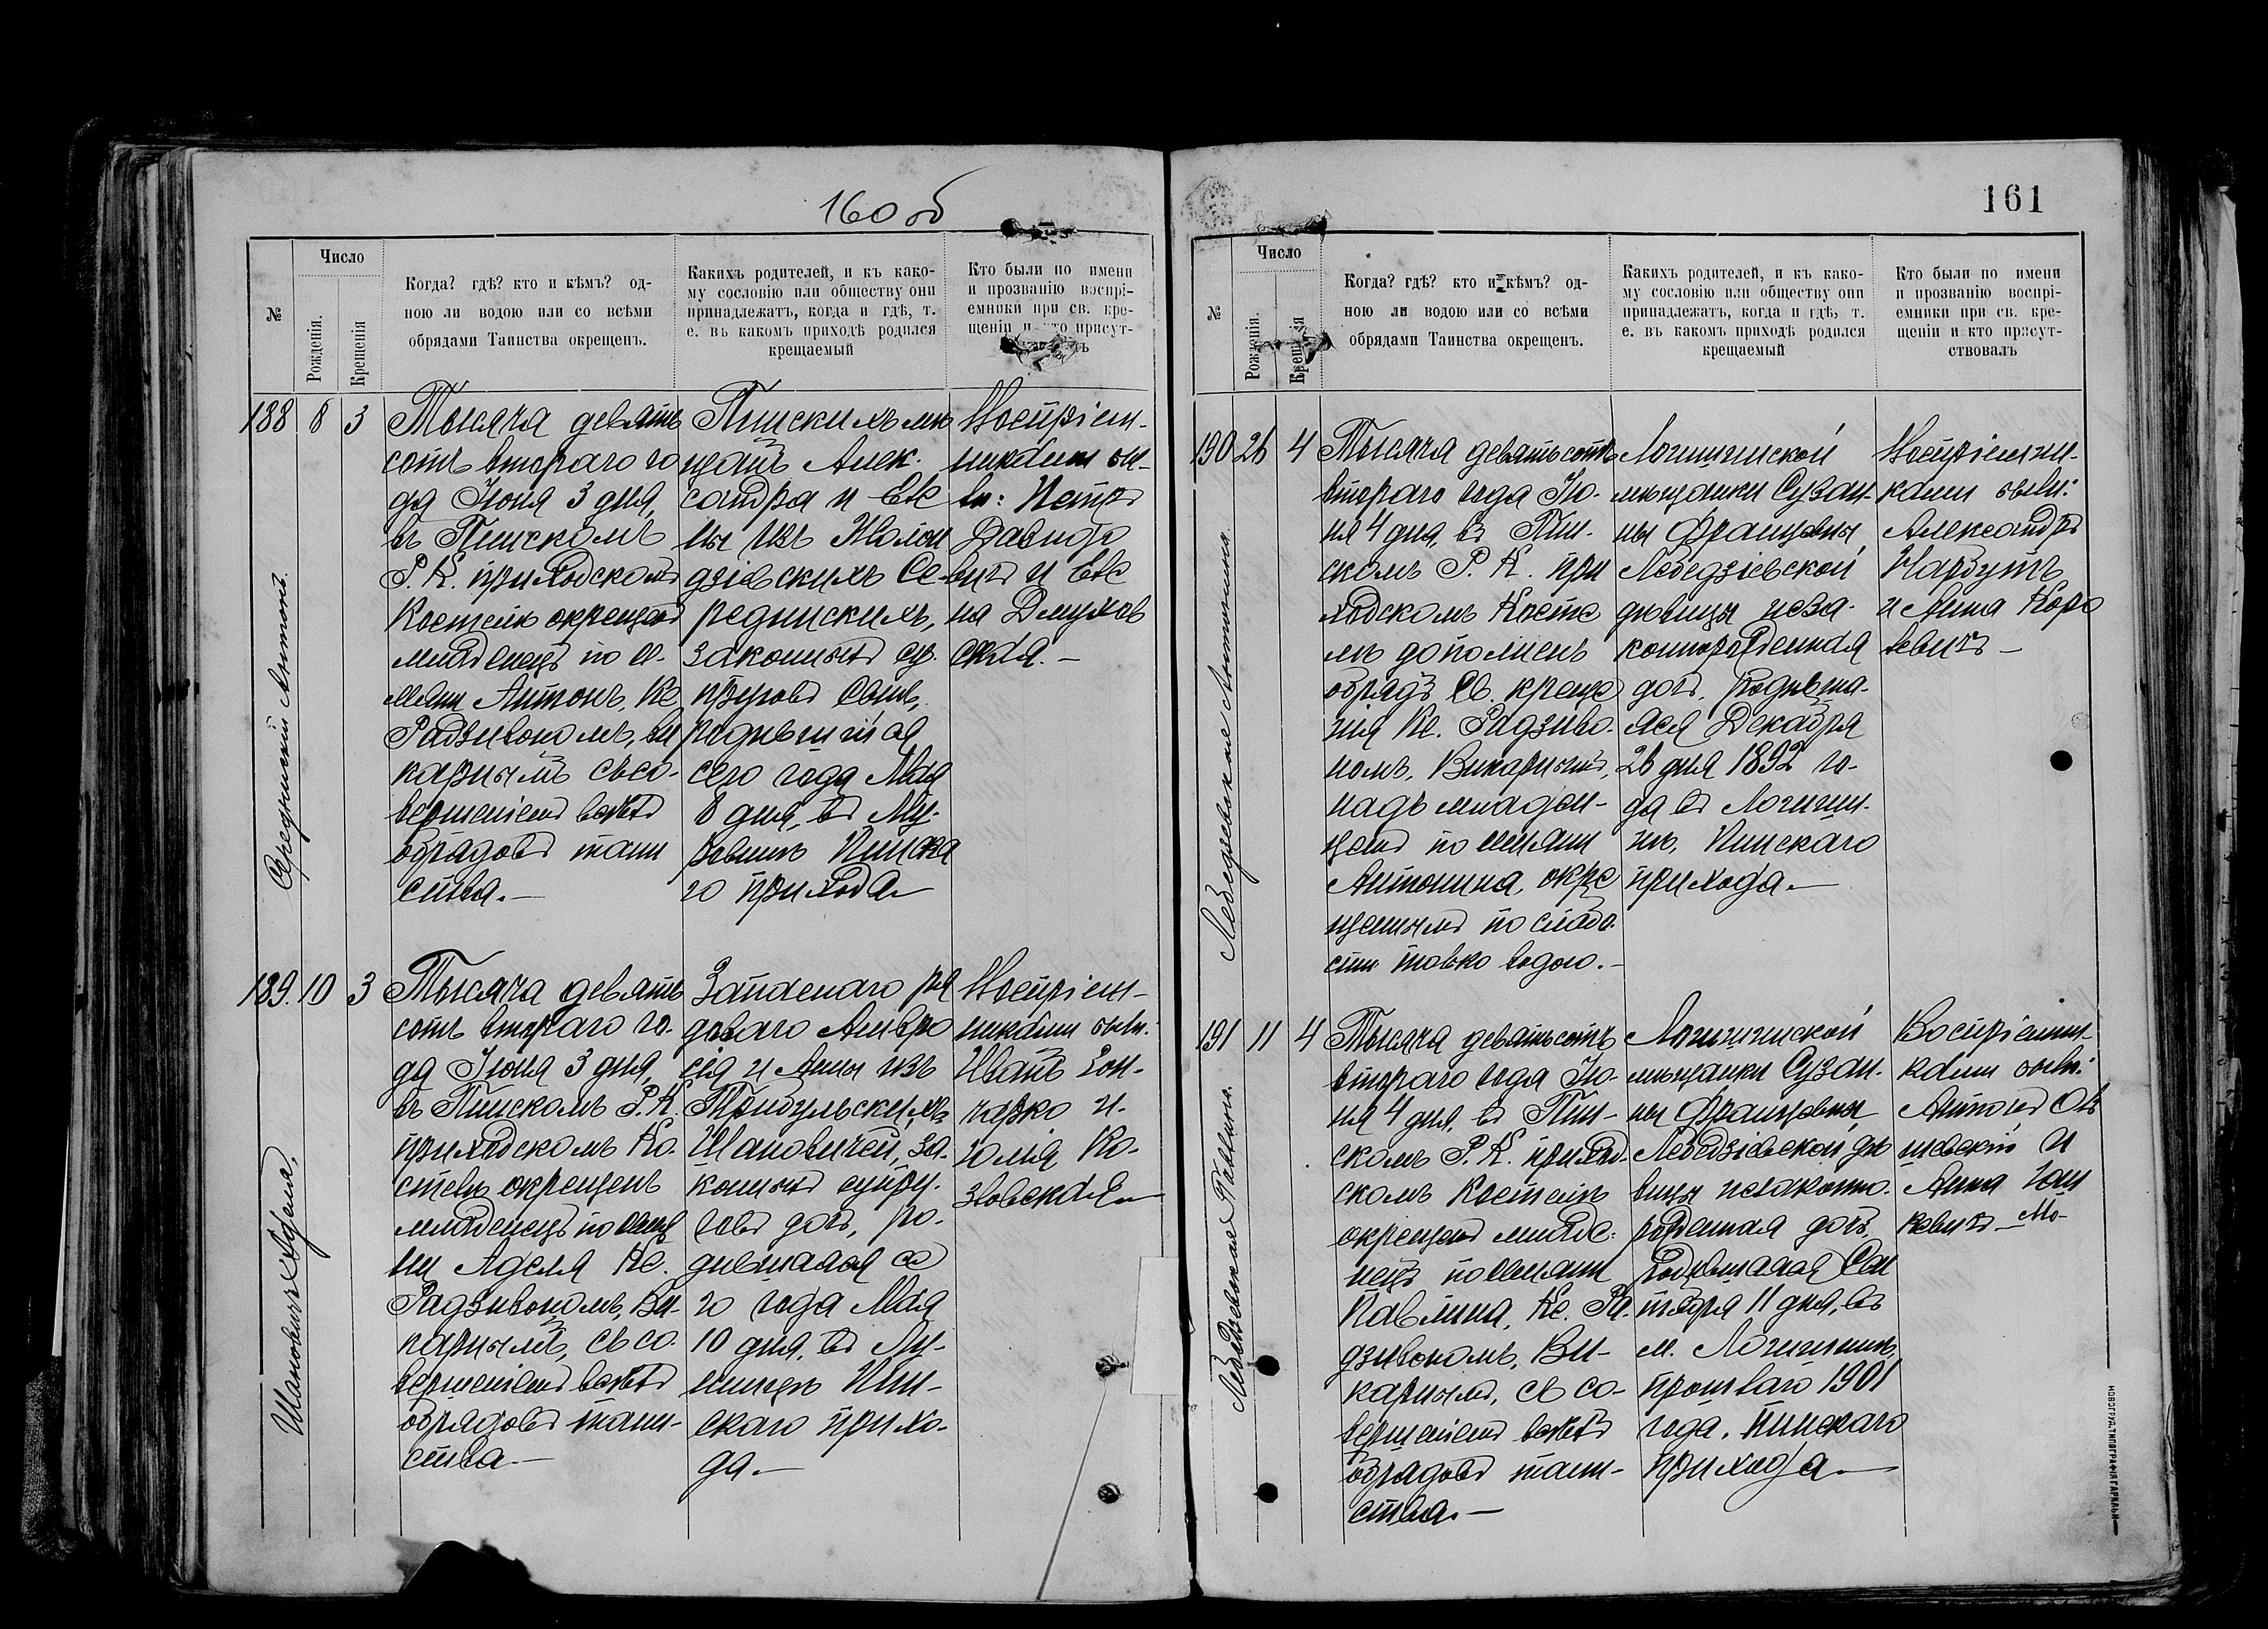 160 об
№
Число
Рожденія.
Крещенія
Когда? гдѣ? кто и кѣмъ? од-
ною ли водою или со всѣми
обрядами Таинства окрещенъ.
Какихъ родителей, и къ како-
му сословію или обществу они
принадлежатъ, когда и гдѣ, т.
е. въ какомъ приходѣ родился
крещаемый
Кто были по имени
и прозванію воспрі-
емники при св. кре-
щеніи и кто присут-
188
8
3
Серединскій Антонъ.
Тысяча девять
сотъ втораго го
да Іюня 3 дня,
въ Пинскомъ
Р. К. приходскомъ
Костелѣ окрещенъ
младенецъ по и-
мени Антонъ, Кс
Радзивономъ, Ви
карнымъ съ со-
вершеніемъ всѣхъ
обрядовъ таин
ства.—
Пинскихъ мѣ
щанъ Алек-
сандра и Еле
ны изъ
Се-
рединскихъ,
законныхъ су-
пруговъ сынъ,
родившійся
сего года Мая
8 дня, въ
Пинска
го прихода—
Воспріем-
никами бы-
ли: Петръ
Давидо
вичъ и Еле
на
ская.—
189.
10
3
Шановичъ Аделя.
Тысяча девять
сотъ втораго го-
да Іюня 3 дня,
въ Пинскомъ Р. К.
приходскомъ Ко-
стелѣ окрещенъ
младенецъ по име
ни Аделя Кс.
Радзивономъ, Ви-
карнымъ, съ со-
вершеніемъ всѣхъ
обрядовъ таин-
ства.—
Запаснаго ря
доваго Амвро
сія и Анны изъ
Шановичей, за-
конныхъ супру-
говъ дочь, ро-
дившаяся се
го года Мая
10 дня, въ
Пин-
скаго прихо-
да.—
Воспріем-
никами были:
Иванъ Гон-
чарко и
Юлія Ко-
зловская—
161
№
Число
Рожденія.
Крещенія
Когда? гдѣ? кто и кѣмъ? од-
ною ли водою или со всѣми
обрядами Таинства окрещенъ.
Какихъ родителей, и къ како-
му сословію или обществу они
принадлежатъ, когда и гдѣ, т.
е. въ какомъ приходѣ родился
крещаемый
Кто были по имени
и прозванію воспрі-
емники при св. кре-
щеніи и кто присут-
ствовалъ
190
26
4
Лебедзевская Антонина.
Тысяча девятьсотъ
втораго года Ію-
ня 4 дня, въ Пин-
скомъ Р. К. при
ходскомъ Косте
лѣ дополненъ
обрядъ Св. креще
нія Кс. Радзиво-
номъ, Викарнымъ,
надъ младен-
цемъ по имени
Антонина, окре
щеннымъ по слабо-
сти токмо водою.—
Логишинской
мѣщанки Сузан-
ны Францовны
Лебедзіевской
дѣвицы неза-
коннорожденная
дочь, родивша-
яся Декабря
26 дня 1892 го-
да въ Логиши-
нѣ, Пинскаго
прихода.—
Воспріемни-
ками были:
Александръ
Нарбутъ
и Анна Коро
левичъ—
191
11
4
Лебедзевская Павлина.
Тысяча девятьсотъ
втораго года Ію-
ня 4 дня, въ Пин-
скомъ Р. К. приход-
скомъ Костелѣ
окрещенъ младе-
нецъ по имени
Павлина, Кс. Ра-
дзивономъ, Ви-
карнымъ, съ со-
вершеніемъ всѣхъ
обрядовъ таин-
ства.—
Логишинской
мѣщанки Сузан-
ны Францовны
Лебедзіевской дѣ
вицы незаконно-
рожденная дочь,
родившаяся Сен
тября 11 дня, въ
м. Логишинѣ,
прошлаго 1901
года, Пинскаго
прихода—
Воспріемни-
ками были:
Антонъ
и
Анна